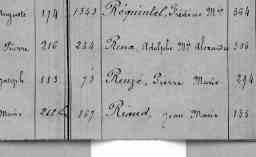 Auguste 174 1343 Réguintel, Frédéric Mie 364
Pierre 216 244 Rena, Adolphe Mie Alexandre 306
Joseph 113 73 Renzé, Pierre Marie 294
Marie 167 Riaud, Jean Marie 135